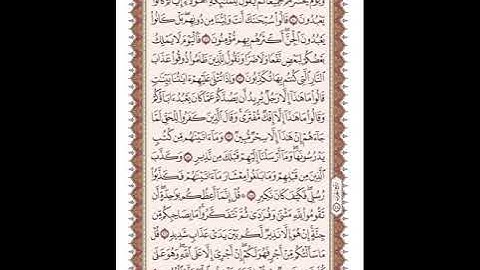 وَيَوْمَ يَحْشُرُهُمْ جَمِيعًا ثُمَّ يَقُولُ لِلْمَلَٰٓئِكَةِ أَهَٰٓؤُلَآءِ إِيَّاكُمْ كَانُوا۟
يَعْبُدُونَ ٤٠ قَالُوا۟ سُبْحَٰنَكَ أَنتَ وَلِيُّنَا مِن دُونِهِم بَلْ كَانُوا۟
يَعْبُدُونَ ٱلْجِنَّ أَكْثَرُهُم بِهِم مُّؤْمِنُونَ ٤١ فَٱلْيَوْمَ لَا يَمْلِكُ
بَعْضُكُمْ لِبَعْضٍ نَّفْعًا وَلَا ضَرًّا وَنَقُولُ لِلَّذِينَ ظَلَمُوا۟ ذُوقُوا۟ عَذَابَ
ٱلنَّارِ ٱلَّتِى كُنتُم بِهَا تُكَذِّبُونَ ٤٢ وَإِذَا تُتْلَىٰ عَلَيْهِمْ ءَايَٰتُنَا بَيِّنَٰتٍ
قَالُوا۟ مَا هَٰذَآ إِلَّا رَجُلٌ يُرِيدُ أَن يَصُدَّكُمْ عَمَّا كَانَ يَعْبُدُ ءَابَآؤُكُمْ
وَقَالُوا۟ مَا هَٰذَآ إِلَّآ إِفْكٌ مُّفْتَرًى وَقَالَ ٱلَّذِينَ كَفَرُوا۟ لِلْحَقِّ لَمَّا
جَآءَهُمْ إِنْ هَٰذَآ إِلَّا سِحْرٌ مُّبِينٌ ٤٣ وَمَآ ءَاتَيْنَٰهُم مِّن كُتُبٍ
يَدْرُسُونَهَا وَمَآ أَرْسَلْنَآ إِلَيْهِمْ قَبْلَكَ مِن نَّذِيرٍ ٤٤ وَكَذَّبَ
ٱلَّذِينَ مِن قَبْلِهِمْ وَمَا بَلَغُوا۟ مِعْشَارَ مَآ ءَاتَيْنَٰهُمْ فَكَذَّبُوا۟
رُسُلِى فَكَيْفَ كَانَ نَكِيرِ ٤٥ قُلْ إِنَّمَآ أَعِظُكُم بِوَٰحِدَةٍ أَن
تَقُومُوا۟ لِلَّهِ مَثْنَىٰ وَفُرَٰدَىٰ ثُمَّ تَتَفَكَّرُوا۟ مَا بِصَاحِبِكُم مِّن
جِنَّةٍ إِنْ هُوَ إِلَّا نَذِيرٌ لَّكُم بَيْنَ يَدَىْ عَذَابٍ شَدِيدٍ ٤٦ قُلْ
مَا سَأَلْتُكُم مِّنْ أَجْرٍ فَهُوَ لَكُمْ إِنْ أَجْرِىَ إِلَّا عَلَى ٱللَّهِ وَهُوَ عَلَىٰ